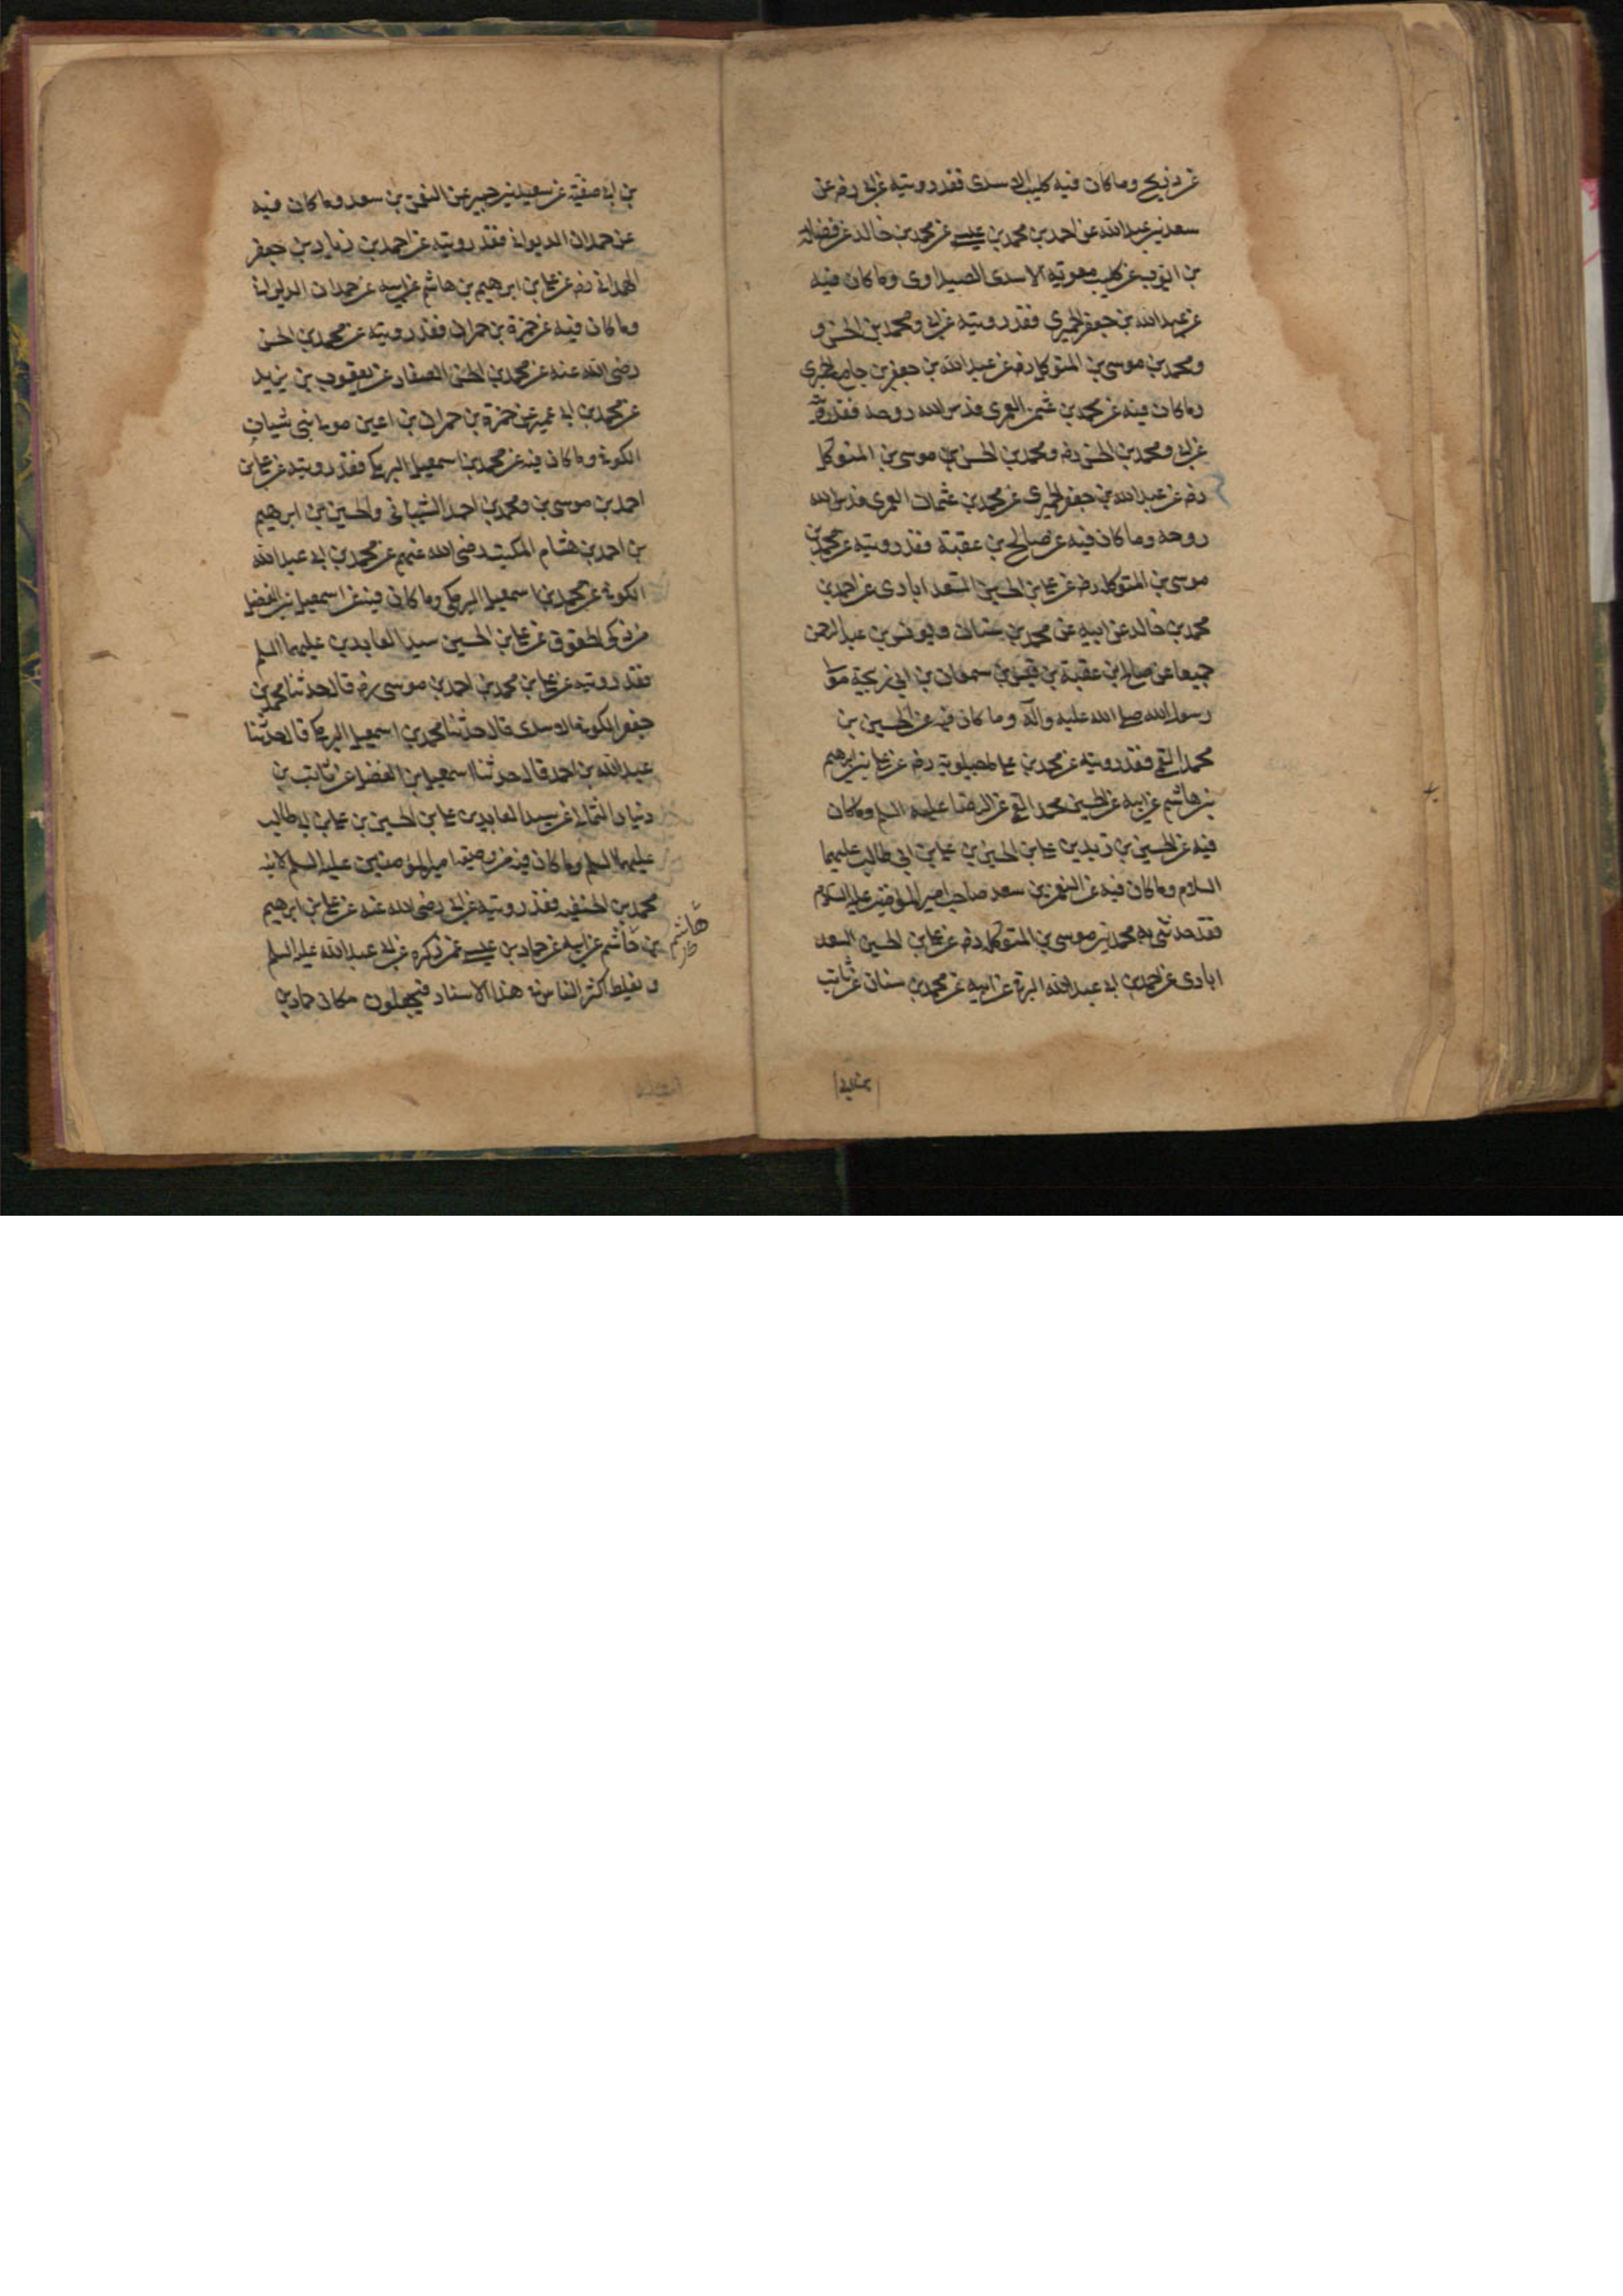 عن ذريح وما كان فيه كليب الاسدى فقد رويته عن ابى رضه عن
سعد بن عبد الله عن احمد بن محمد بن عيسى عن محمد بن خالد عن فضالة
بن ايوب عن كليب معوية الاسدى الصيداوى وما كان فيه
عن عبد الله بن جعفر الحميرى فقد رويته عن ابى ومحمد بن الحسن و
ومحمد بن موسى بن المتوكل رضه عن عبد الله بن جعفر بن جامع الحميرى
وما كان فيه عن محمد بن عثمن العمرى قدس الله روحه فقد رويته
عن ابى ومحمد بن الحسن رضه ومحمد بن الحسن بن موسى بن المتوكل
رضه عن عبد الله بن جعفر الحميرى عن محمد بن عثمان العمرى قدس الله
روحه وما كان فيه عن صالح بن عقبة فقد رويته عن محمد بن
موسى بن المتوكل رضه عن على بن الحسين السعد ابادى عن احمد بن
محمد بن خالد عن ابيه عن محمد بن سنان ويونس بن عبد الرحمن
جميعا عن صالح بن عقبة بن قيس بن سمعان بن ابى ربيحة مولى
رسول الله صلى الله عليه وآله وما كان فيه عن الحسين بن
محمد القمى فقد رويته عن محمد بن على ماجيلويه رضه عن على بن ابرهيم
بن هاشم عن ابيه عن الحسين محمد القمى عن الرضا عليه السلم وما كان
فيه عن الحسين بن زيد بن على بن الحسين بن على بن ابى طالب عليهما
السلام وما كان فيه عن النعمن بن سعد صاحب امير المؤمنين عليه السلام
فقد حدثنى به محمد بن موسى بن المتوكل رضه عن على بن الحسين السعد
ابادى عن احمد بن ابى عبد الله البرقى عن ابيه عن محمد بن سنان عن ثابت
بن ابى
بن ابى صفية عن سعيد بن جبير عن النعمن بن سعد وما كان فيه
عن حمدان الديوانى فقد رويته عن احمد بن زياد بن جعفر
الهمدانى رضه عن على بن ابرهيم بن هاشم عن ابيه عن حمدان الديوانى
وما كان فيه عن حمزة بن حمران فقد رويته عن محمد بن الحسن
رضى الله عنه عن محمد بن الحسن الصفار عن يعقوب بن يزيد
عن محمد بن ابى عمير عن حمزة بن حمران بن اعين مولى بنى شيبان
الكوفى وما كان فيه عن محمد بن اسمعيل البرمكى فقد رويته عن على بن
احمد بن موسى بن ومحمد بن احمد الشيبانى والحسين بن ابرهيم
بن احمد بن هشام المكتب رضى الله عنهم عن محمد بن ابى عبد الله
الكوفى عن محمد بن اسمعيل البرمكى وما كان فيه عن اسمعيل بن الفضل
من ذكر الحقوق عن على بن الحسين سيد العابدين عليهما السلم
فقد رويته عن على بن محمد بن احمد بن موسى رضه قال حدثنا محمد بن
جعفر الكوفى الاسدى قال حدثنا محمد بن اسمعيل البرمكى قال حدثنا
عبد الله بن احمد قال حدثنا اسمعيل بن الفضل عن ثابت بن
دينار الثمالى عن سيد العابدين على بن الحسين بن على بن ابى طالب
عليهما السلم وما كان فيه من وصية امير المؤمنين عليه السلم لابنه
محمد بن الحنفيه فقد رويته عن ابى رضى الله عنه عن على بن ابرهيم
بن هاشم عن ابيه عن حماد بن عيسى عمن ذكره عن ابى عبد الله عليه السلم
هاشم
ويغلط اكثر الناس فى هذا الاسناد فيجعلون مكان حماد بن